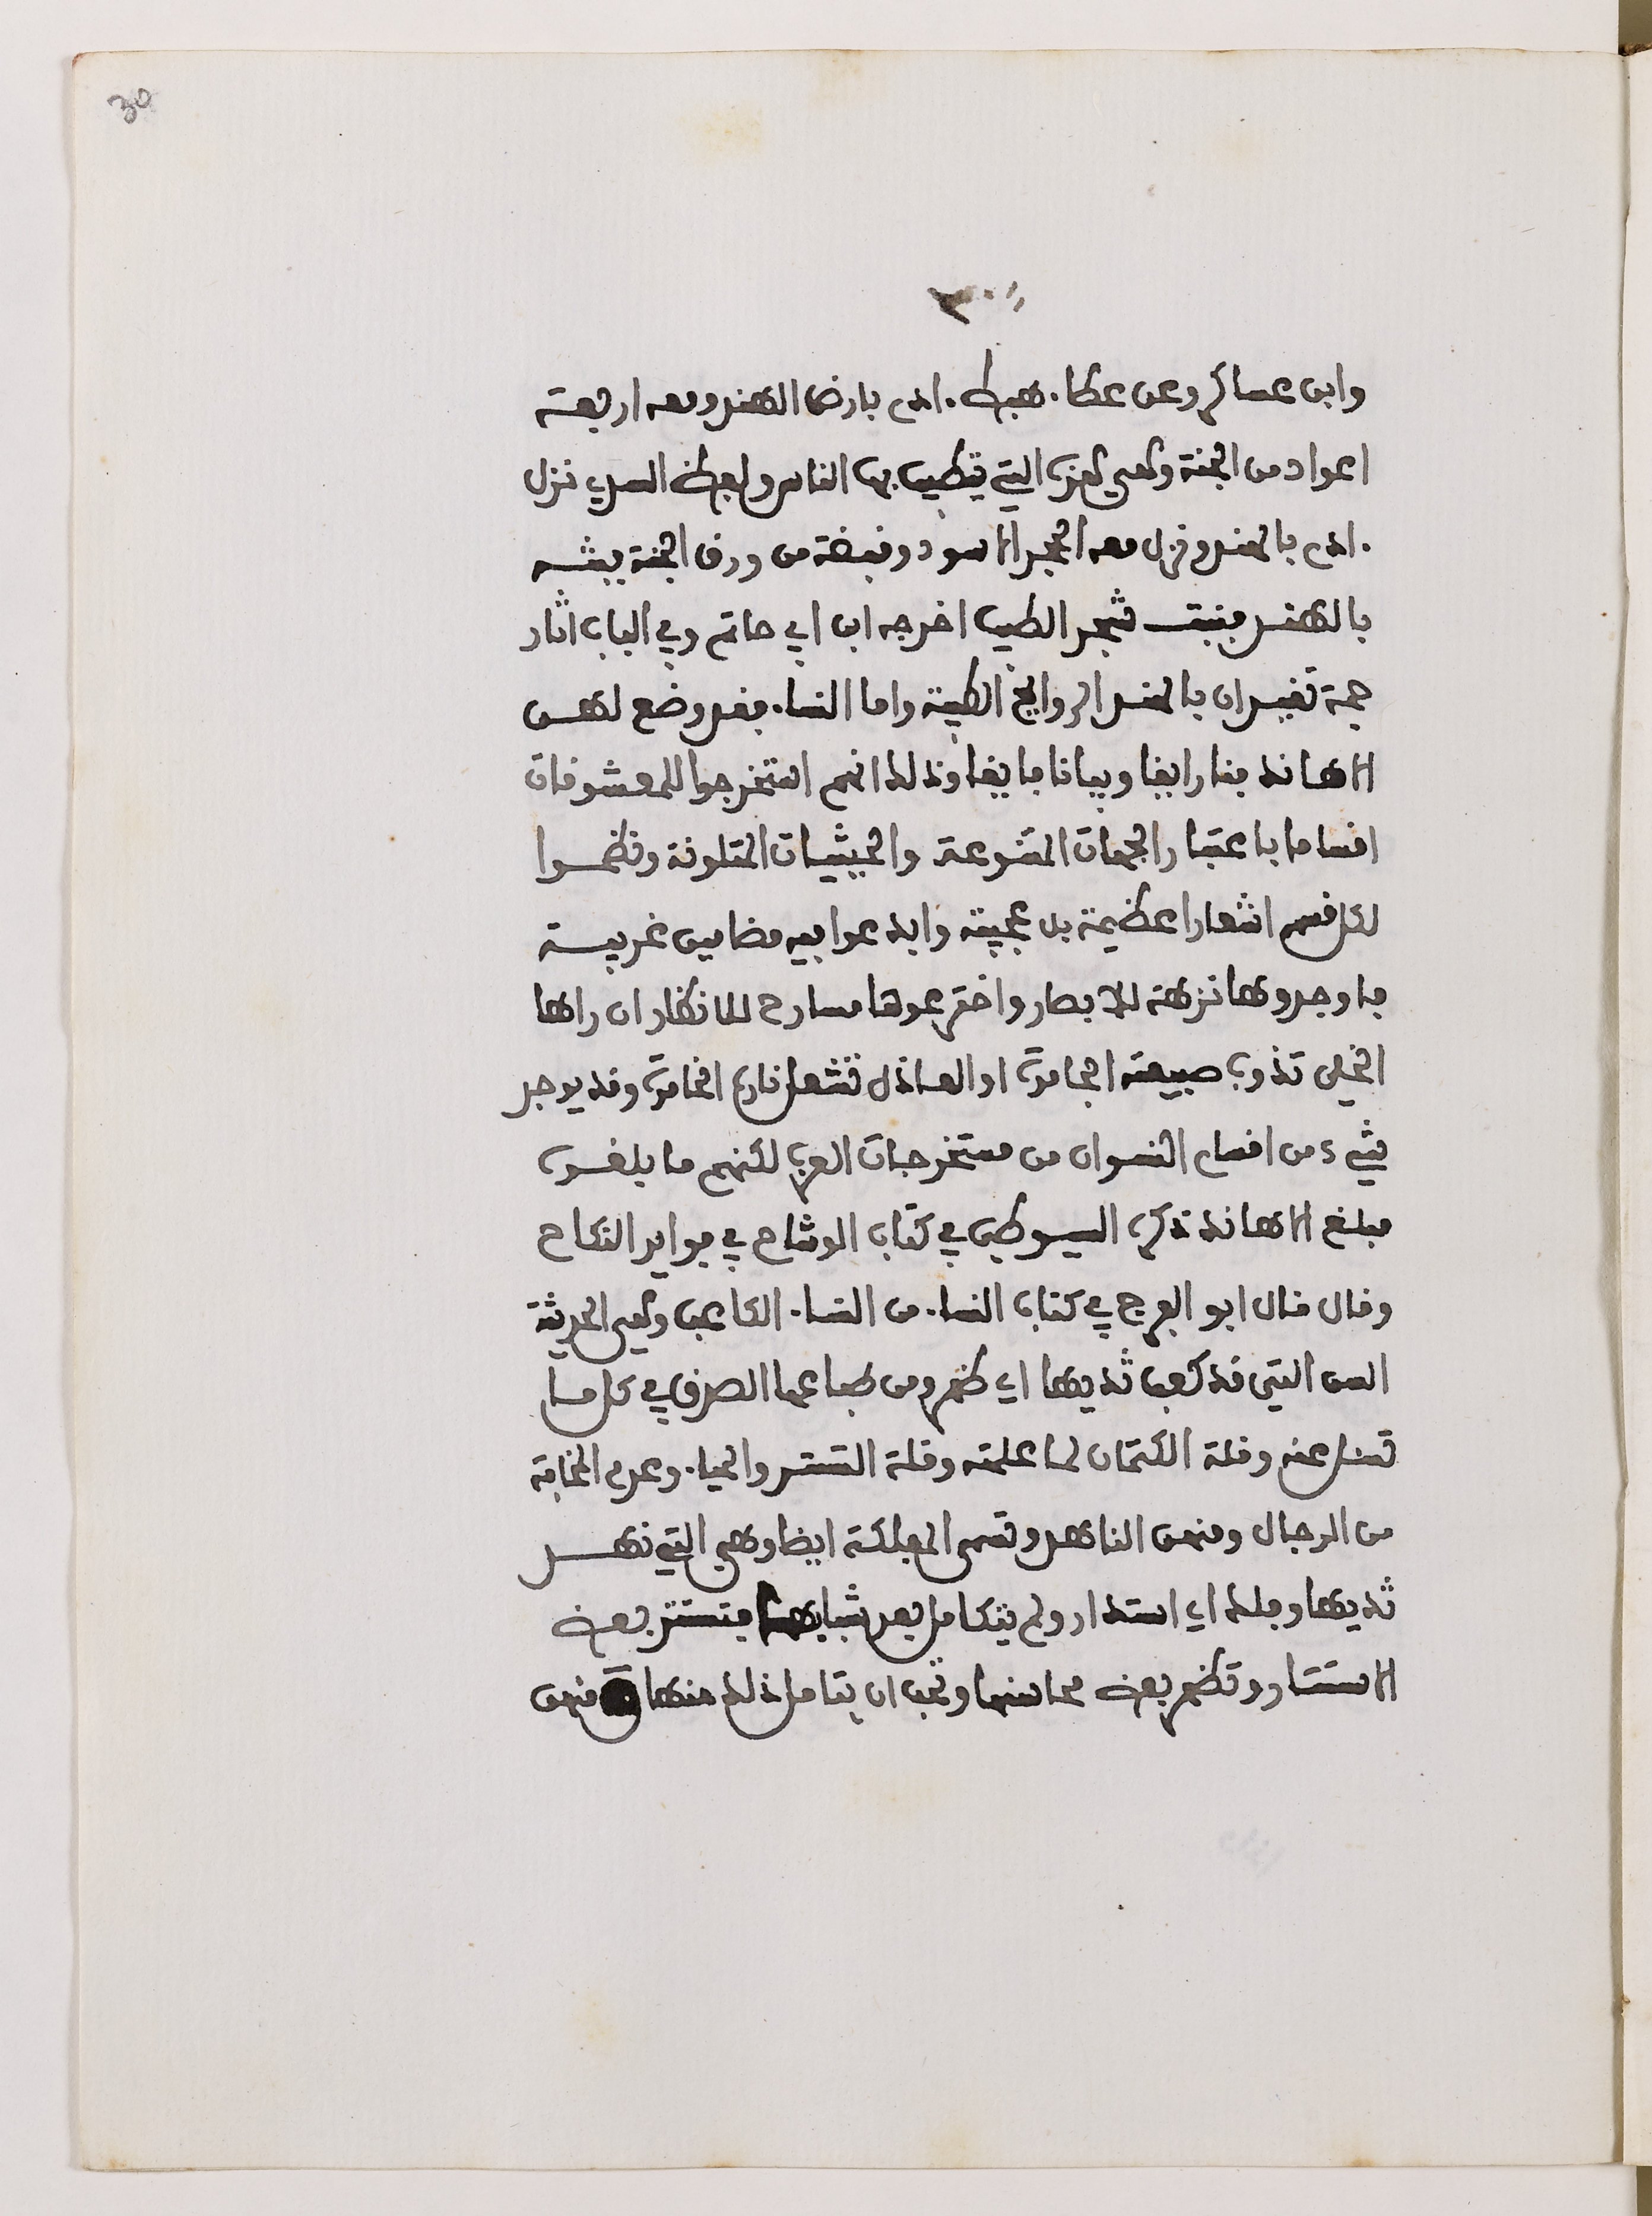 30
٣٠
وابن عساكر وعن عطا. هبط. ادم بارض الهند ومعه اربعة
اعواد من الجنة وهي هذه التي يتطيب بها الناس ولفظ السدي نزل
.ادم بالهند ونزل معه الحجر الاسود وقبضة من ورق الجنة فبثه
بالهند فنبت شجر الطيب اخرجه ابن ابي حاتم وفي الباب اثار
جمة تفيد ان بالهند الروايح الطيبة واما النسا. فقد وضع لهن
الاهاند فنا رايقا وبيانا فايقا وذلك انهم استخرجوا للمعشوقات
اقساما باعتبار الجهات المتنوعة والحيثيات المتلونة ونظموا
لكل قسم اشعارا عظيمة بل عجيبة وابدعوا فيه مضامين غريبة
فاوجدوها نزهة للابصار واخترعوها مسارح للانظار ان راها
الخلي تذوب صبيعته الجامدة او العاذل تشعل ناره الخامدة وقد يوجد
شيء من اقسام النسوان من مستخرجات العرب لكنهم ما بلغوا
مبلغ الاهاند ذكره السيوطي في كتاب الوشاح في فوايد النكاح
وقال قال ابو الفرج في كتاب النسا. من النسا. الكاعب وهي الحديثة
السن التي قد كعب ثديها اي ظهر ومن طباعها الصدق في كل ما
تسل عنه وقلة الكتمان لما علمته وقلة التستر والحيا. وعدم المخافة
من الرجال ومنهن الناهد وتسمى المفلكة ايضا وهي التي نهد
ثديها وفلك اي استدار ولم يتكامل بعد شبابها فتستتر بعض
الاستتار وتظهر بعض محاسنها وتحب ان يتامل ذلك منها ومنهن